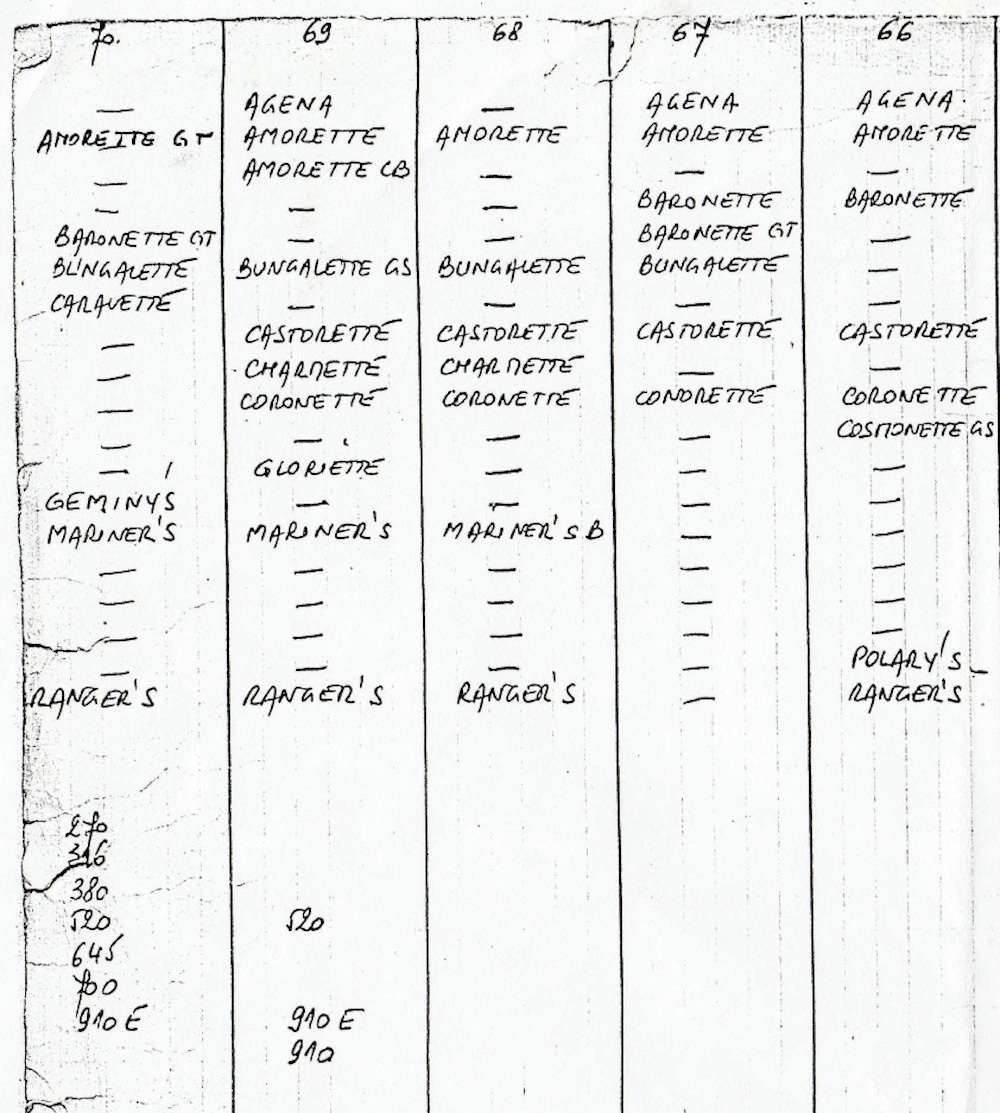 70. 69 68 67 66
— AGENA — AGENA AGENA
AMORETTE GT AMORETTE AMORETTE AMORETTE AMORETTE
— AMORETTE CB — — —
— — — BARONETTE BARONETTE
BARONETTE GT — — BARONETTE GT —
BUNGALETTE BUNGALETTE GS BUNGALETTE BUNGALETTE —
CARAVETTE — — — —
— CASTORETTE CASTORETTE CASTORETTE CASTORETTE
— CHARMETTE CHARMETTE — —
— CORONETTE CORONETTE CONDRETTE CORONETTE
— — — — COSMONETTE GS
— GLORIETTE — — —
GEMINY'S — — — —
MARINER'S MARINER'S MARINER'S B — —
— — — — —
— — — — —
— — — — —
— — — — POLARY'S
RANGER'S RANGER'S RANGER'S — RANGER'S
270
316
380
520 520
645
700
910 E 910 E
910